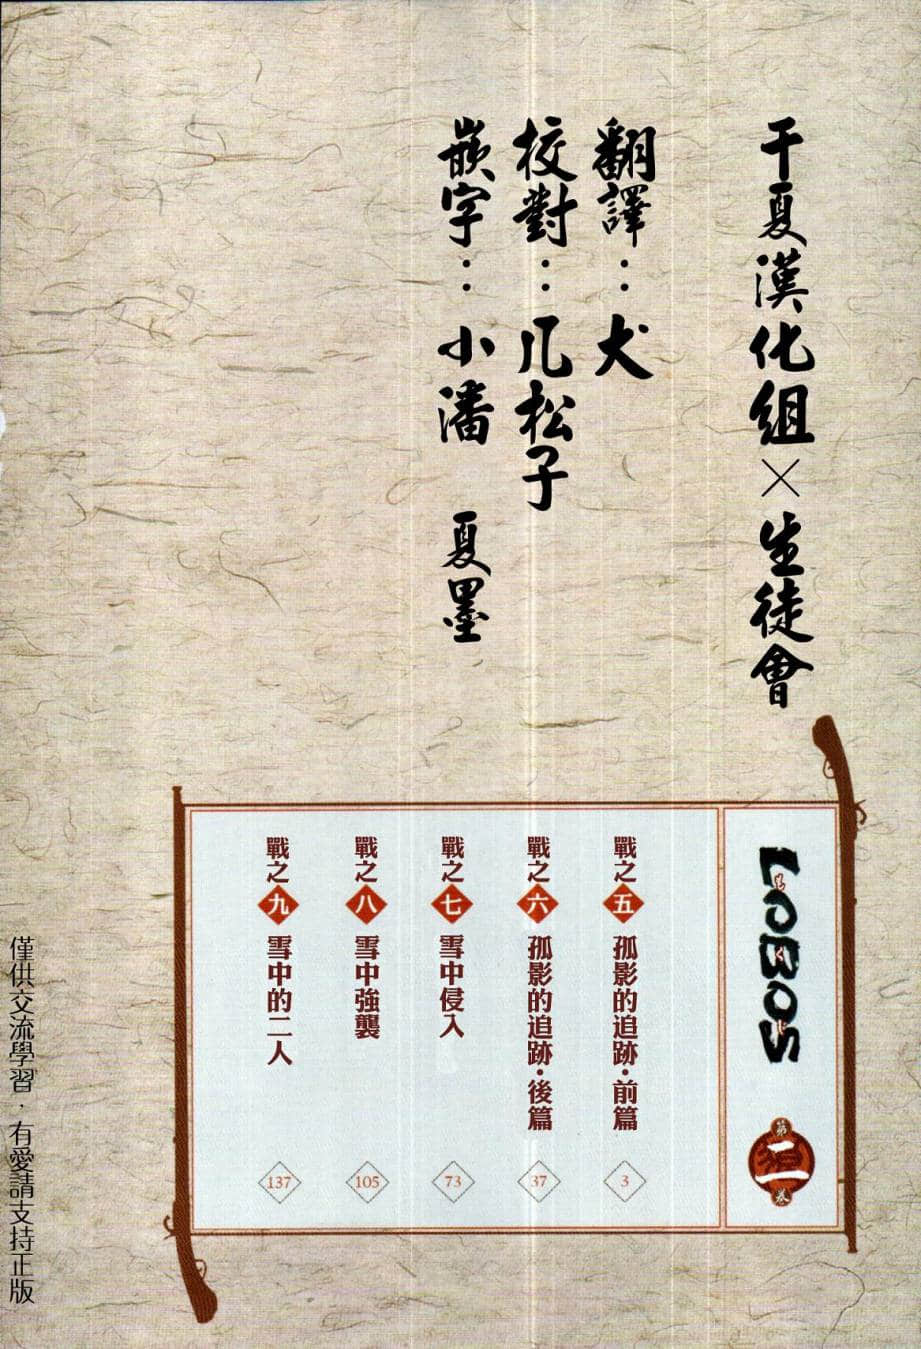 干夏漢化組×生徒會
翻譯：犬
校對：几松子
嵌字：小潘 夏墨
LOBOS
第二卷
戰之五 孤影的追跡・前篇 3
戰之六 孤影的追跡・後篇 37
戰之七 雪中侵入 73
戰之八 雪中強襲 105
戰之九 雪中的二人 137
僅供交流學習．有愛請支持正版